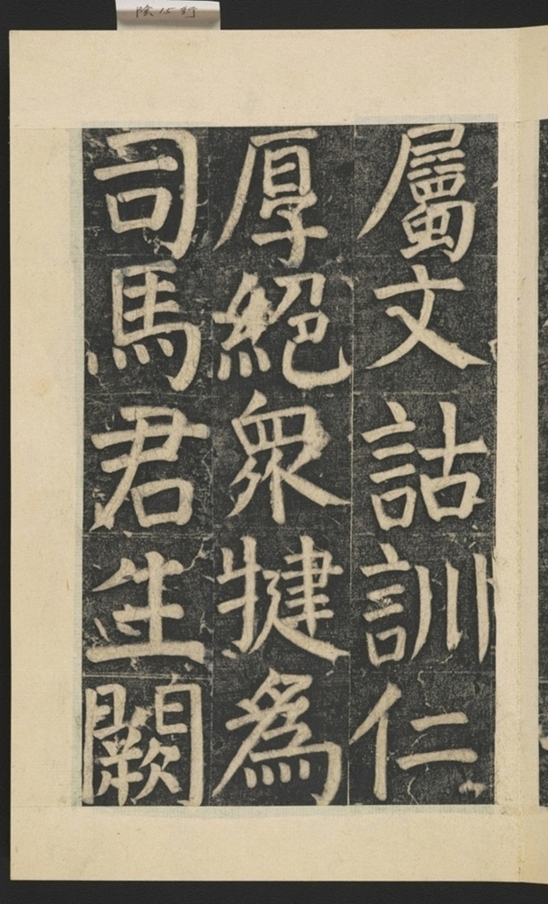 陰15行
屬文詁訓仁
厚絕眾揵為
司馬君生闕